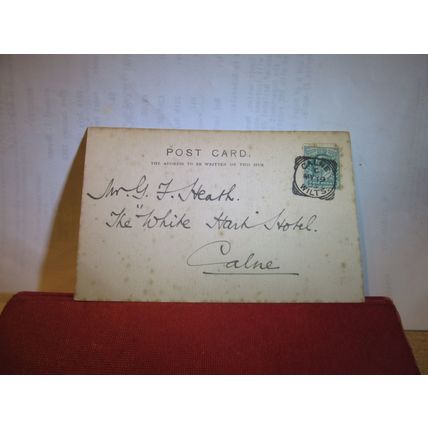 POST CARD.
THE ADDRESS TO BE WRITTEN ON THIS SIDE
CALNE
WILTS
Mr G. F. Heath.
The "White Hart" Hotel.
Calne